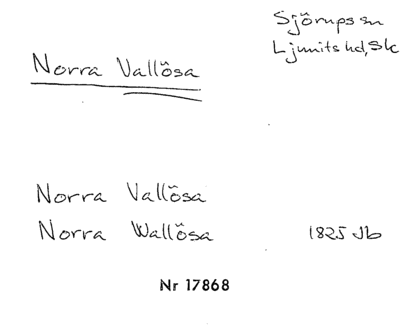 Sjörups sn
Ljunits hd, Sk
Norra Vallösa
Norra Vallösa
Norra Wallösa 1825 Jb
Nr 17868